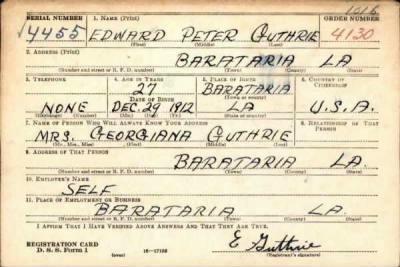 1016
SERIAL NUMBER 1. NAME (Print) ORDER NUMBER
4455 EDWARD PETER GUTHRIE 4130
(First) (Middle) (Last)
2. ADDRESS (Print)
BARATARIA LA
(Number and street or R. F. D. number) (Town) (County) (State)
3. TELEPHONE 4. AGE IN YEARS 5. PLACE OF BIRTH 6. COUNTRY OF CITIZENSHIP
27 BARATARIA
DATE OF BIRTH (Town or county)
NONE DEC. 29 1912 LA U.S.A.
(Exchange) (Number) (Mo.) (Day) (Yr.) (State or country)
7. NAME OF PERSON WHO WILL ALWAYS KNOW YOUR ADDRESS 8. RELATIONSHIP OF THAT PERSON
MRS. GEORGIANA GUTHRIE
(Mr., Mrs., Miss) (First) (Middle) (Last)
9. ADDRESS OF THAT PERSON
BARATARIA LA.
(Number and street or R. F. D. number) (Town) (County) (State)
10. EMPLOYER'S NAME
SELF
11. PLACE OF EMPLOYMENT OR BUSINESS
BARATARIA LA.
(Number and street or R. F. D. number) (Town) (County) (State)
I AFFIRM THAT I HAVE VERIFIED ABOVE ANSWERS AND THAT THEY ARE TRUE.
REGISTRATION CARD
D. S. S. Form 1 16—17105 E Guthrie
(over) (Registrant's signature)